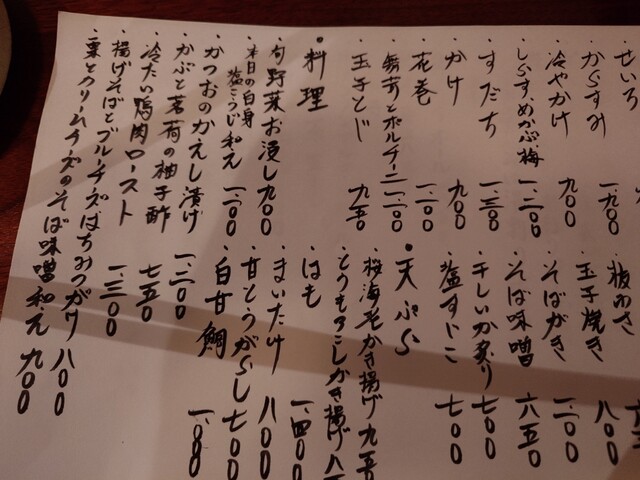 ・せいろ
・からすみ 一、九〇〇
・冷やかけ 九〇〇
・しらす、めかぶ梅 一、二〇〇
・すだち 一、三〇〇
・かけ 九〇〇
・花巻 一、二〇〇
・舞茸とポルチーニ 一、一〇〇
・玉子とじ 九五〇
・料理
・旬野菜お浸し 九〇〇
・本日の白身
塩こうじ和え 一、二〇〇
・かつおのかえし漬け
・かぶと茗荷の柚子酢 一、二〇〇
・冷たい鴨肉ロースト 七五〇
・揚げそばとブルーチーズはちみつがけ 八〇〇
・栗とクリームチーズのそば味噌和え 九〇〇
・板わさ
・玉子焼き 八〇〇
・そばがき 一、二〇〇
・そば味噌 六五〇
・干しいか炙り 七〇〇
・塩すじこ 七〇〇
・天ぷら
・桜海老かき揚げ 九五〇
・とうもろこしかき揚げ
・はも 一、四〇〇
・まいたけ 八〇〇
・甘とうがらし 七〇〇
・白甘鯛
一、三〇〇